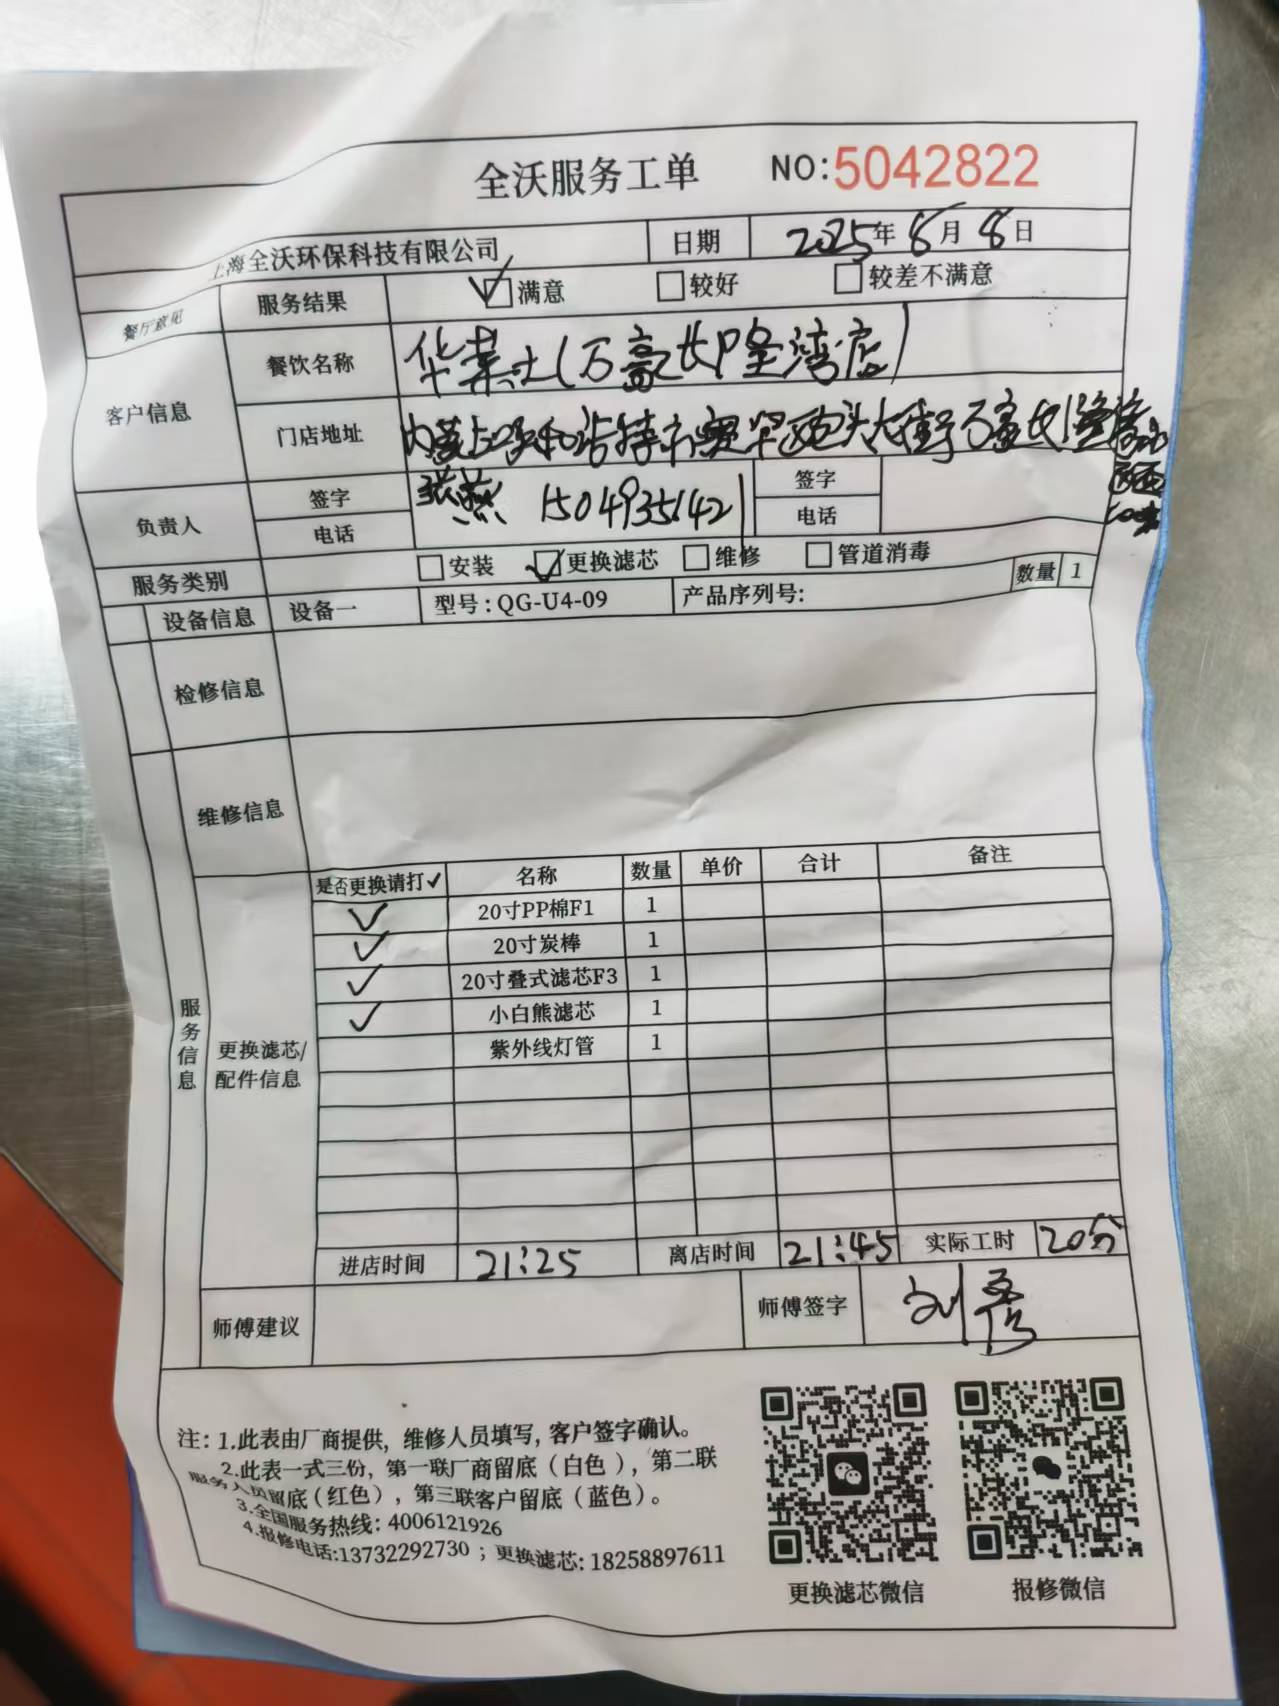 全沃服务工单 NO:5042822
上海全沃环保科技有限公司 日期 2025年8月8日
餐厅意见 服务结果 ✓满意 □较好 □较差不满意
客户信息 餐饮名称 华莱士(万豪长隆湾店)
门店地址 内蒙古呼和浩特市赛罕区 头大街万豪长隆湾
负责人 签字 张燕 签字
电话 15049351421 电话
服务类别 □安装 ✓更换滤芯 □维修 □管道消毒
设备信息 设备一 型号:QG-U4-09 产品序列号: 数量 1
检修信息
维修信息
服务信息 更换滤芯/配件信息
是否更换请打✓ 名称 数量 单价 合计 备注
✓ 20寸PP棉F1 1
✓ 20寸炭棒 1
✓ 20寸叠式滤芯F3 1
✓ 小白熊滤芯 1
紫外线灯管 1
进店时间 21:25 离店时间 21:45 实际工时 20分
师傅建议 师傅签字 刘
注: 1.此表由厂商提供, 维修人员填写, 客户签字确认。
2.此表一式三份, 第一联厂商留底(白色), 第二联
服务人员留底(红色), 第三联客户留底(蓝色)。
3.全国服务热线: 4006121926
4.报修电话:13732292730 ; 更换滤芯: 18258897611
更换滤芯微信 报修微信